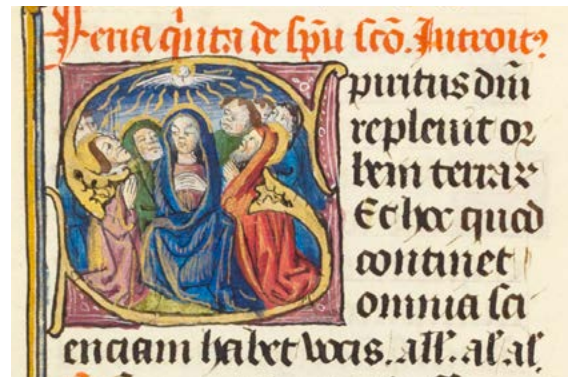 Feria q̃uita de sp̃u sc̃o. Introit9
Spiritus dñi
repleuit or
bem terrar
Et hoc quod
continet
omnia sci
enciam habet vocis. all'. al'. al'.